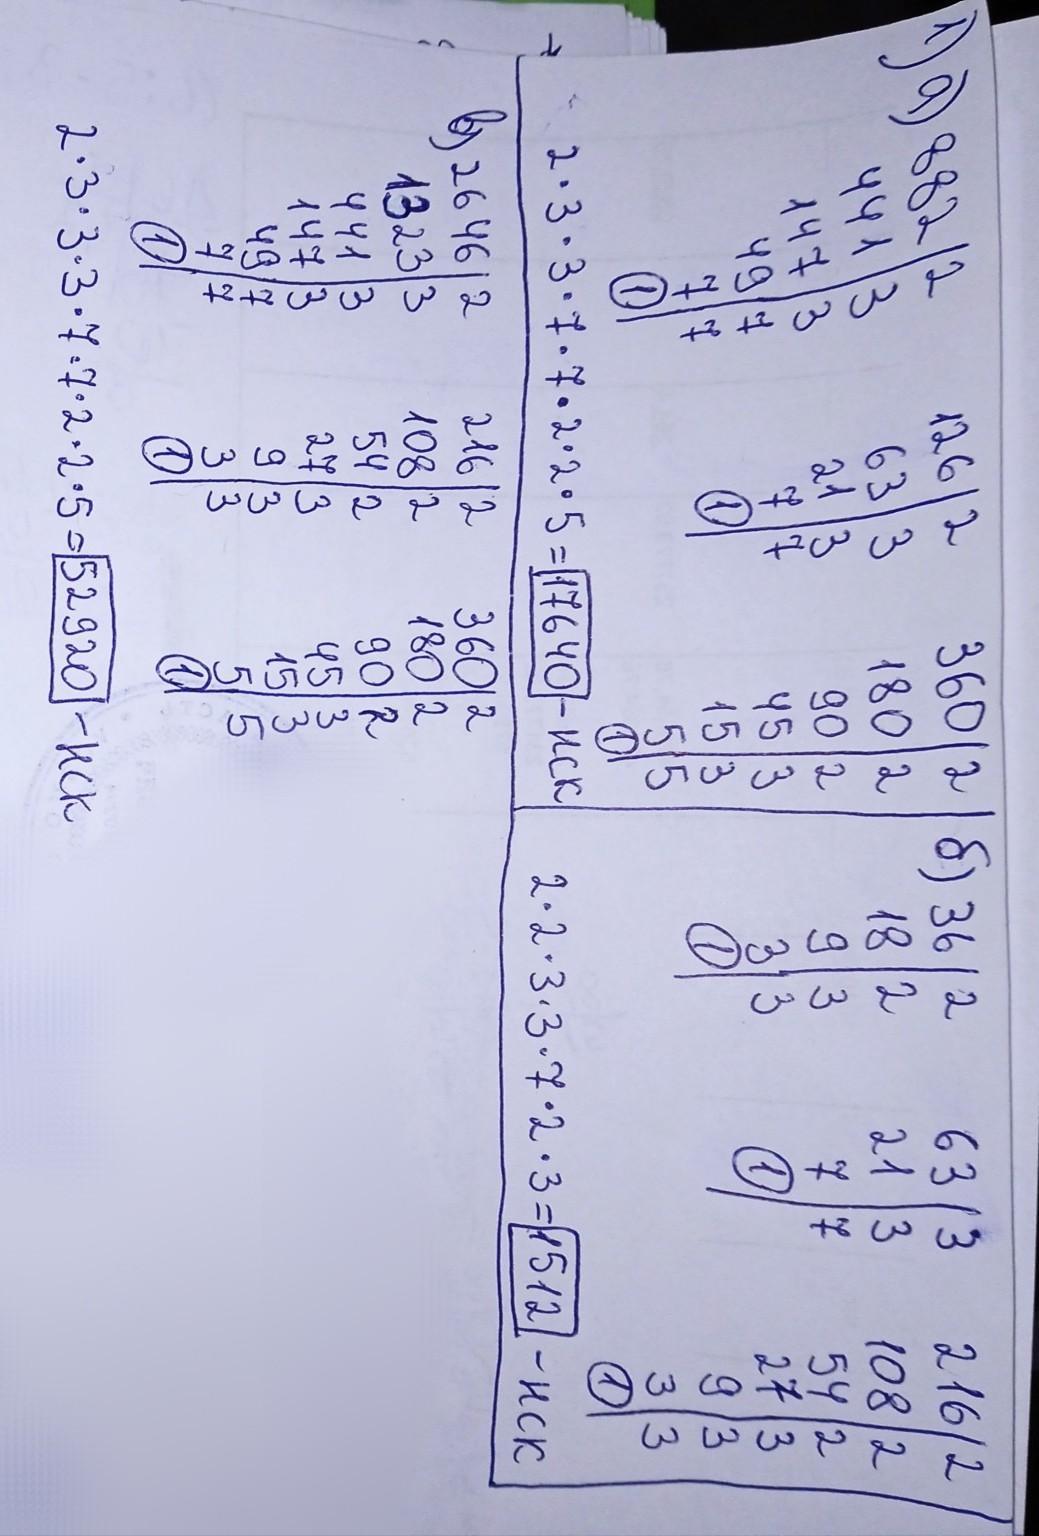 1) а) 882 | 2
441 | 3
147 | 3
49 | 7
7 | 7
1
126 | 2
63 | 3
21 | 3
7 | 7
1
360 | 2
180 | 2
90 | 2
45 | 3
15 | 3
5 | 5
1
2·3·3·7·7·2·2·5=17640-НСК
б) 36 | 2
18 | 2
9 | 3
3 | 3
1
63 | 3
21 | 3
7 | 7
1
216 | 2
108 | 2
54 | 2
27 | 3
9 | 3
3 | 3
1
2·2·3·3·7·2·3=1512-НСК
в) 2646 | 2
1323 | 3
441 | 3
147 | 3
49 | 7
7 | 7
1
216 | 2
108 | 2
54 | 2
27 | 3
9 | 3
3 | 3
1
360 | 2
180 | 2
90 | 2
45 | 3
15 | 3
5 | 5
1
2·3·3·3·7·7·2·2·5=52920-НСК